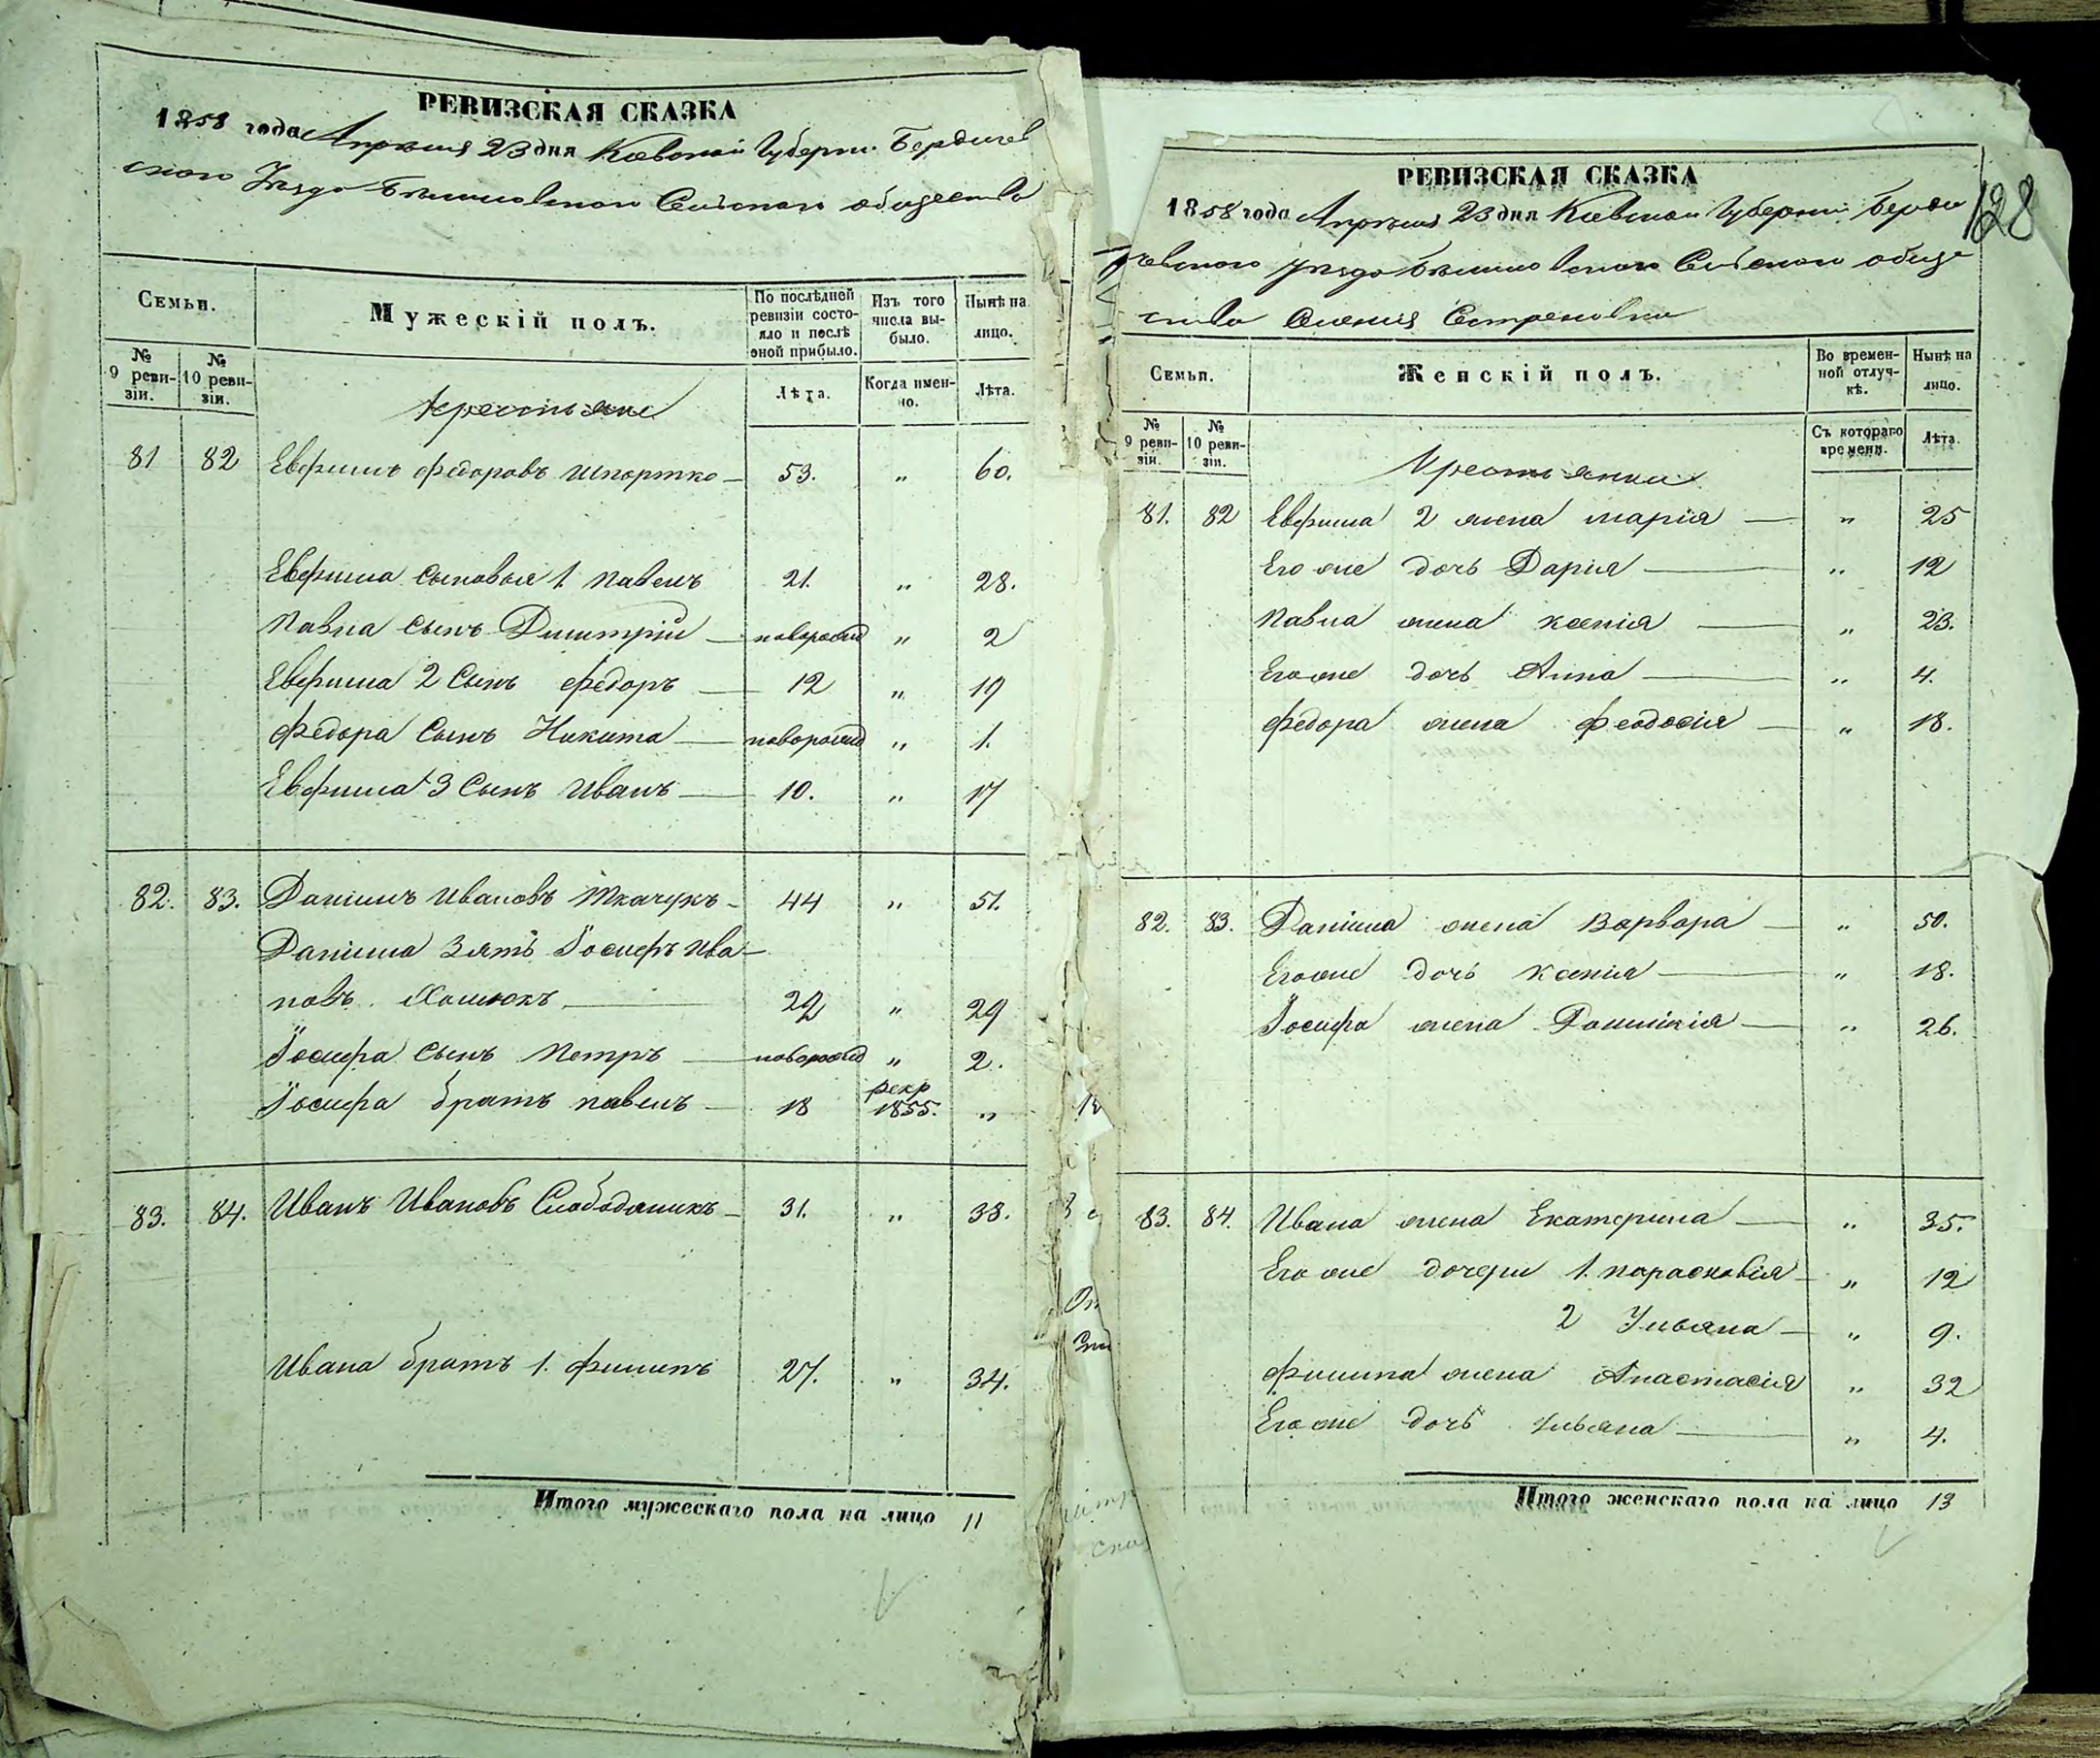 РЕВИЗСКАЯ СКАЗКА
1858 года Апрѣля 23 дня Кіевской Губерніи Бердичев
ского Уѣзда Бѣлиловского Сельского общества
Семьи.
Мужескій полъ.
По послѣдней ревизіи состояло и послѣ оной прибыло.
Изъ того числа выбыло.
Нынѣ на лицо.
№ 9 ревизіи.
№ 10 ревизіи.
Крестьяне
Лѣта.
Когда именно.
Лѣта.
81 82 Евфимъ Федоровъ Шпортко 53. " 60.
Евфима Сыновья 1 Павелъ 21. " 28.
Павла Сынъ Дмитрій новорожд " 2
Евфима 2 Сынъ Федоръ 12 " 19
Федора Сынъ Никита новорожд " 1.
Евфима 3 Сынъ Иванъ 10. " 17
82. 83. Даніилъ Ивановъ Ткачукъ 44 " 51.
Даніила Зять Іосифъ Ива-
новъ 22 " 29
Іосифа Сынъ Петръ новорожд " 2.
Іосифа братъ Павелъ 18 рекр 1855. "
83. 84. Иванъ Ивановъ Слободяникъ 31. " 38.
Ивана братъ 1. Филипъ 27. " 34.
Итого мужескаго пола на лицо 11
128
РЕВИЗСКАЯ СКАЗКА
1858 года Апрѣля 23 дня Кіевской Губерніи Берди
чевского Уѣзда Бѣлиловского Сельского обще
ства Селенія
Семьи.
Женскій полъ.
Во временной отлучкѣ.
Нынѣ на лицо.
№ 9 ревизіи.
№ 10 ревизіи.
Крестьянки
Съ котораго времени.
Лѣта.
81. 82 Евфима 2 жена Марія " 25
Его же дочь Дарія " 12
Павла жена Ксенія " 23.
Его же дочь Анна " 4.
Федора жена Феодосія " 18.
82. 83. Даніила жена Варвара " 50.
Его же дочь Ксенія " 18.
Іосифа жена Доминикія " 26.
83. 84. Ивана жена Екатерина " 35.
Его же дочери 1. Парасковія " 12
2 Ульяна " 9.
Филипа жена Анастасія " 32
Его же дочь Ульяна " 4.
Итого женскаго пола на лицо 13